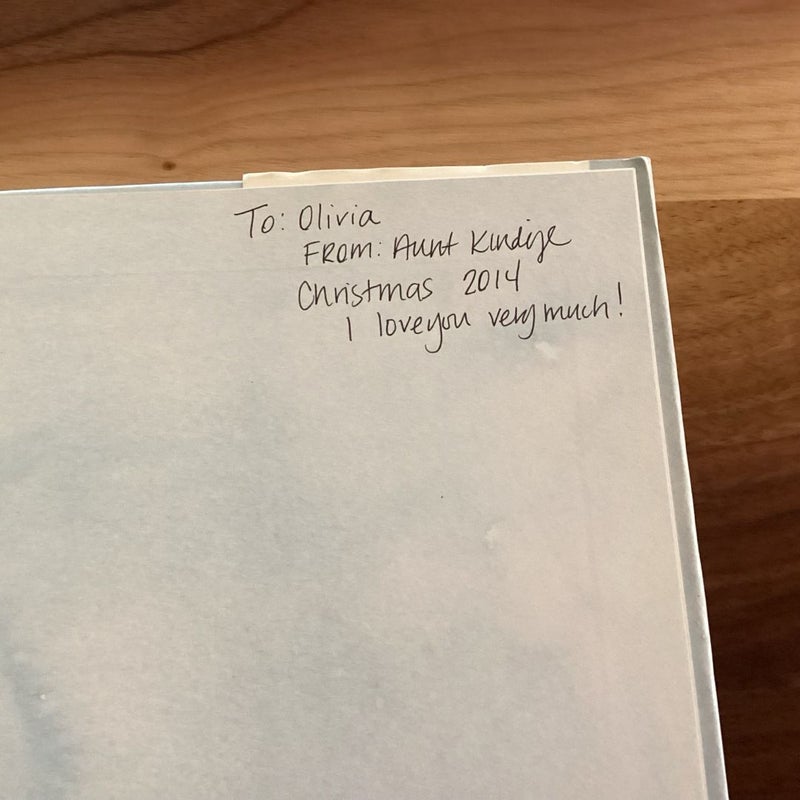 To: Olivia
From: Aunt
Christmas 2014
I love you very much!